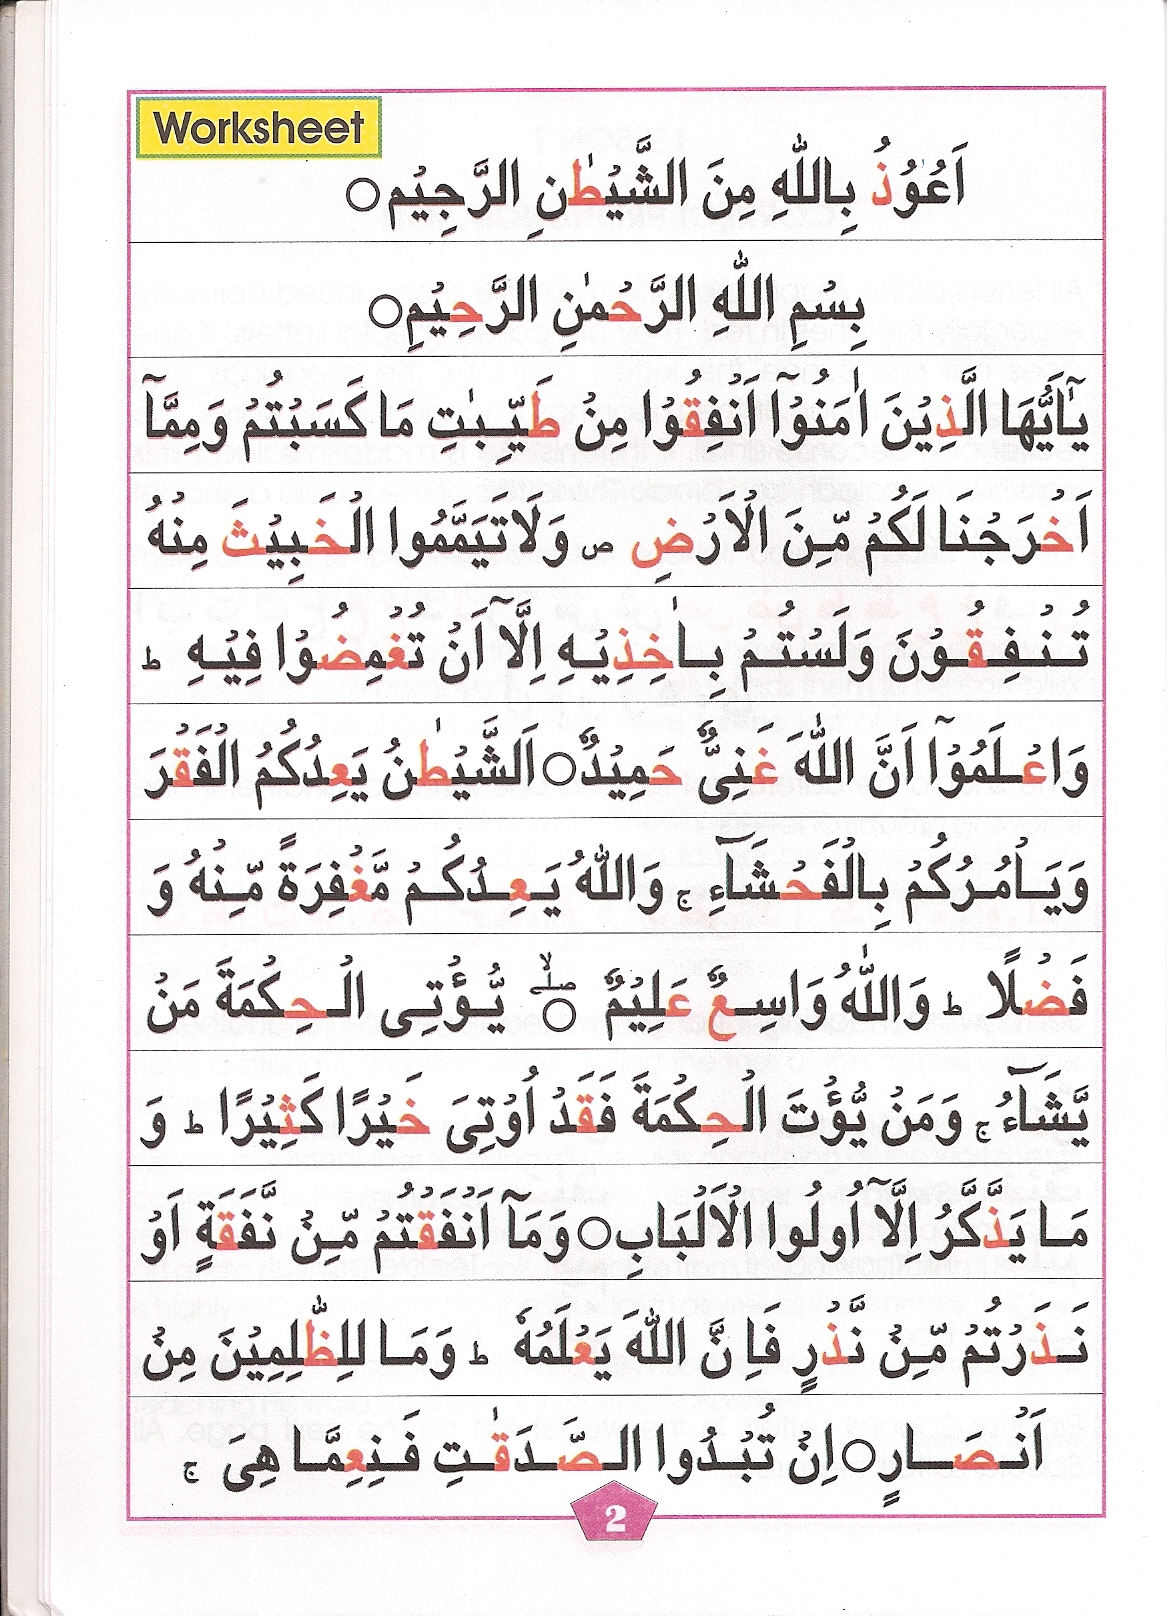 Worksheet
اَعُوْذُ بِاللّٰهِ مِنَ الشَّيْطٰنِ الرَّجِيْمِ○
بِسْمِ اللّٰهِ الرَّحْمٰنِ الرَّحِيْمِ○
يٰٓاَيُّهَا الَّذِيْنَ اٰمَنُوْٓا اَنْفِقُوْا مِنْ طَيِّبٰتِ مَا كَسَبْتُمْ وَمِمَّآ
اَخْرَجْنَا لَكُمْ مِّنَ الْاَرْضِ ص وَلَا تَيَمَّمُوا الْخَبِيْثَ مِنْهُ
تُنْفِقُوْنَ وَلَسْتُمْ بِاٰخِذِيْهِ اِلَّآ اَنْ تُغْمِضُوْا فِيْهِ ط
وَاعْلَمُوْٓا اَنَّ اللّٰهَ غَنِىٌّ حَمِيْدٌ○ اَلشَّيْطٰنُ يَعِدُكُمُ الْفَقْرَ
وَيَاْمُرُكُمْ بِالْفَحْشَآءِ ج وَاللّٰهُ يَعِدُكُمْ مَّغْفِرَةً مِّنْهُ وَ
فَضْلًا ط وَاللّٰهُ وَاسِعٌ عَلِيْمٌ ○ لا صلے يُّؤْتِى الْحِكْمَةَ مَنْ
يَّشَآءُ ج وَمَنْ يُّؤْتَ الْحِكْمَةَ فَقَدْ اُوْتِىَ خَيْرًا كَثِيْرًا ط وَ
مَا يَذَّكَّرُ اِلَّآ اُولُوا الْاَلْبَابِ○ وَمَآ اَنْفَقْتُمْ مِّنْ نَّفَقَةٍ اَوْ
نَذَرْتُمْ مِّنْ نَّذْرٍ فَاِنَّ اللّٰهَ يَعْلَمُهٗ ط وَمَا لِلظّٰلِمِيْنَ مِنْ
اَنْصَارٍ○ اِنْ تُبْدُوا الصَّدَقٰتِ فَنِعِمَّا هِىَ ج
2